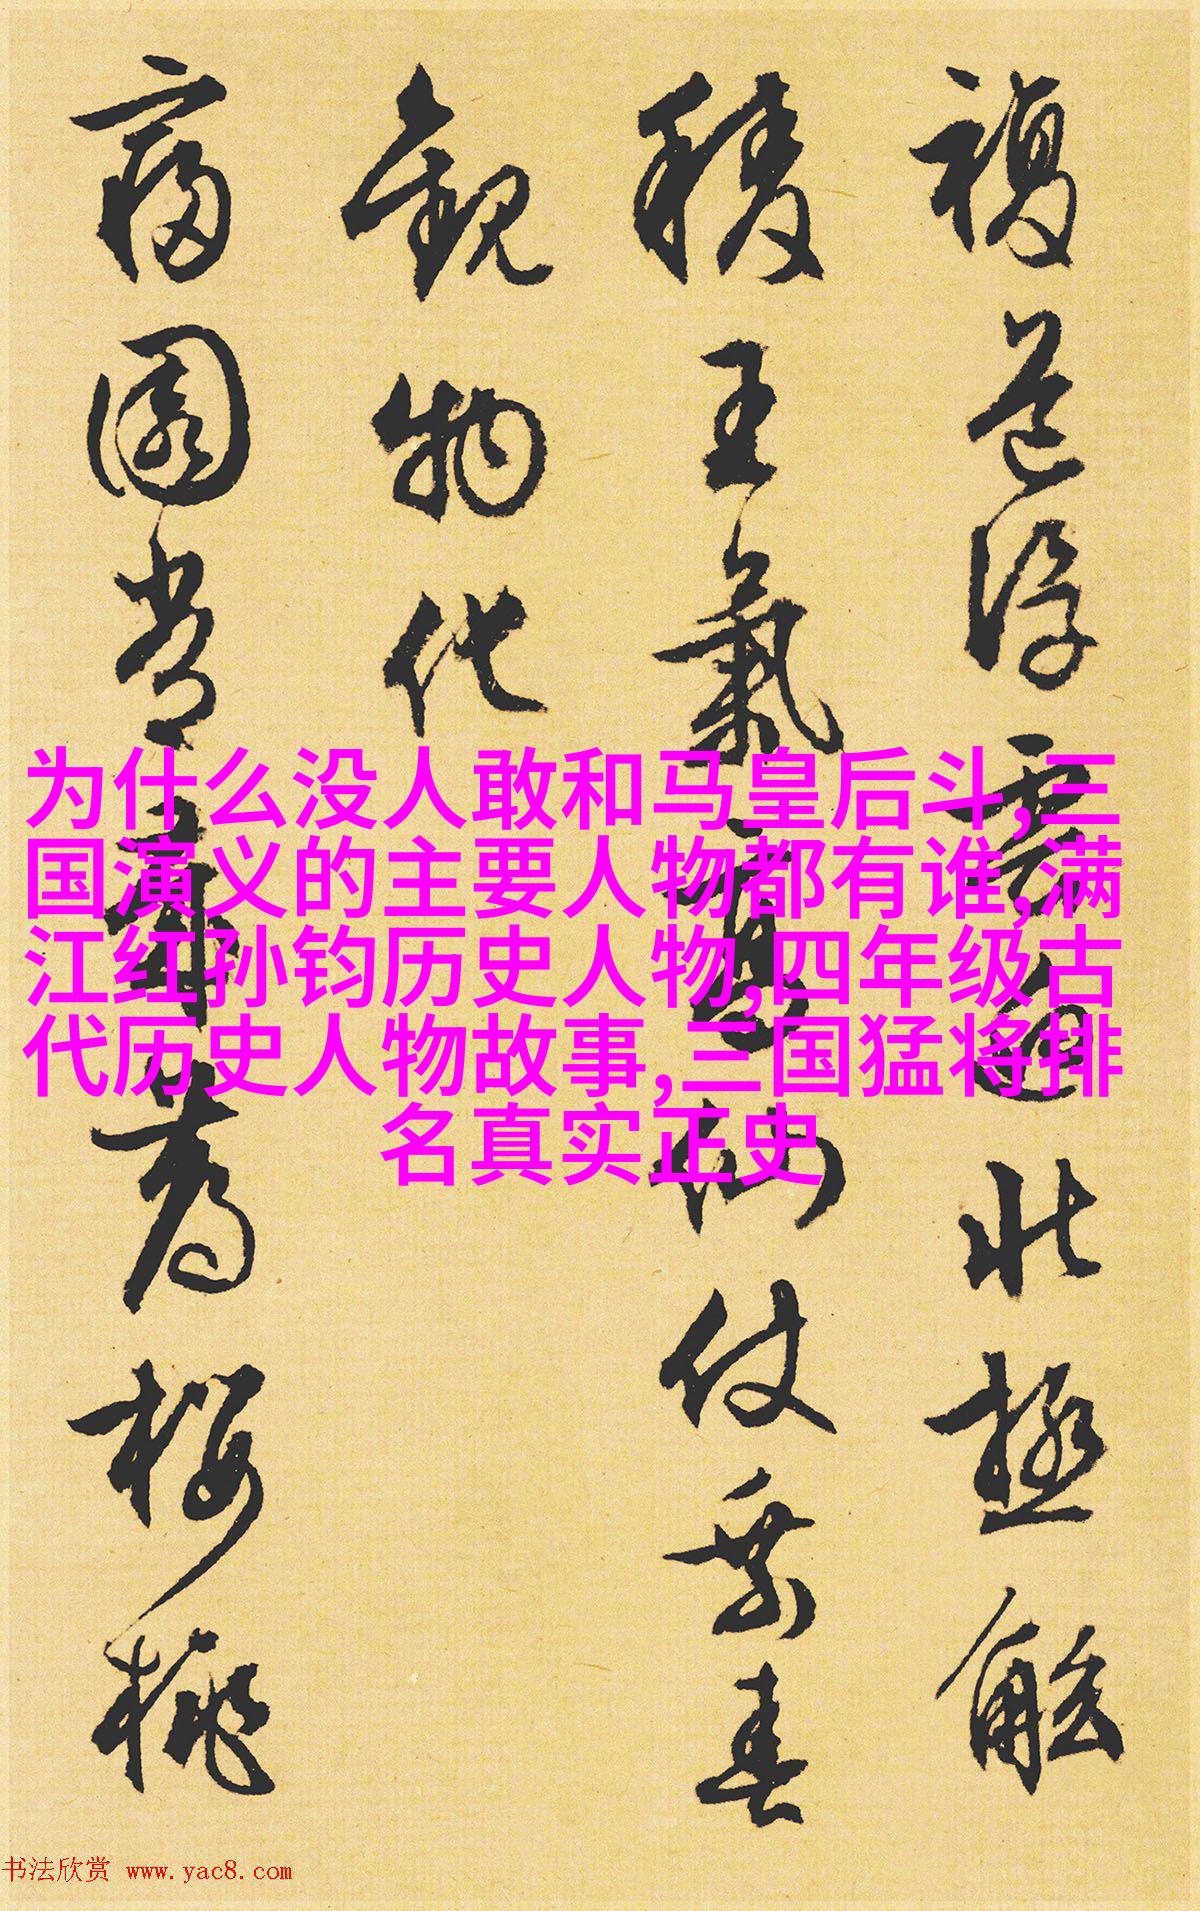 複道浮雲通北極觚
稜王氣直仙仗乘春
觀物代
寢園嘗薦櫻桃
为什么没人敢和马皇后斗,三
国演义的主要人物都有谁,满
江红孙钧历史人物,四年级古
代历史人物故事,三国猛将排
名真实正史
书法欣赏 www.yac8.com